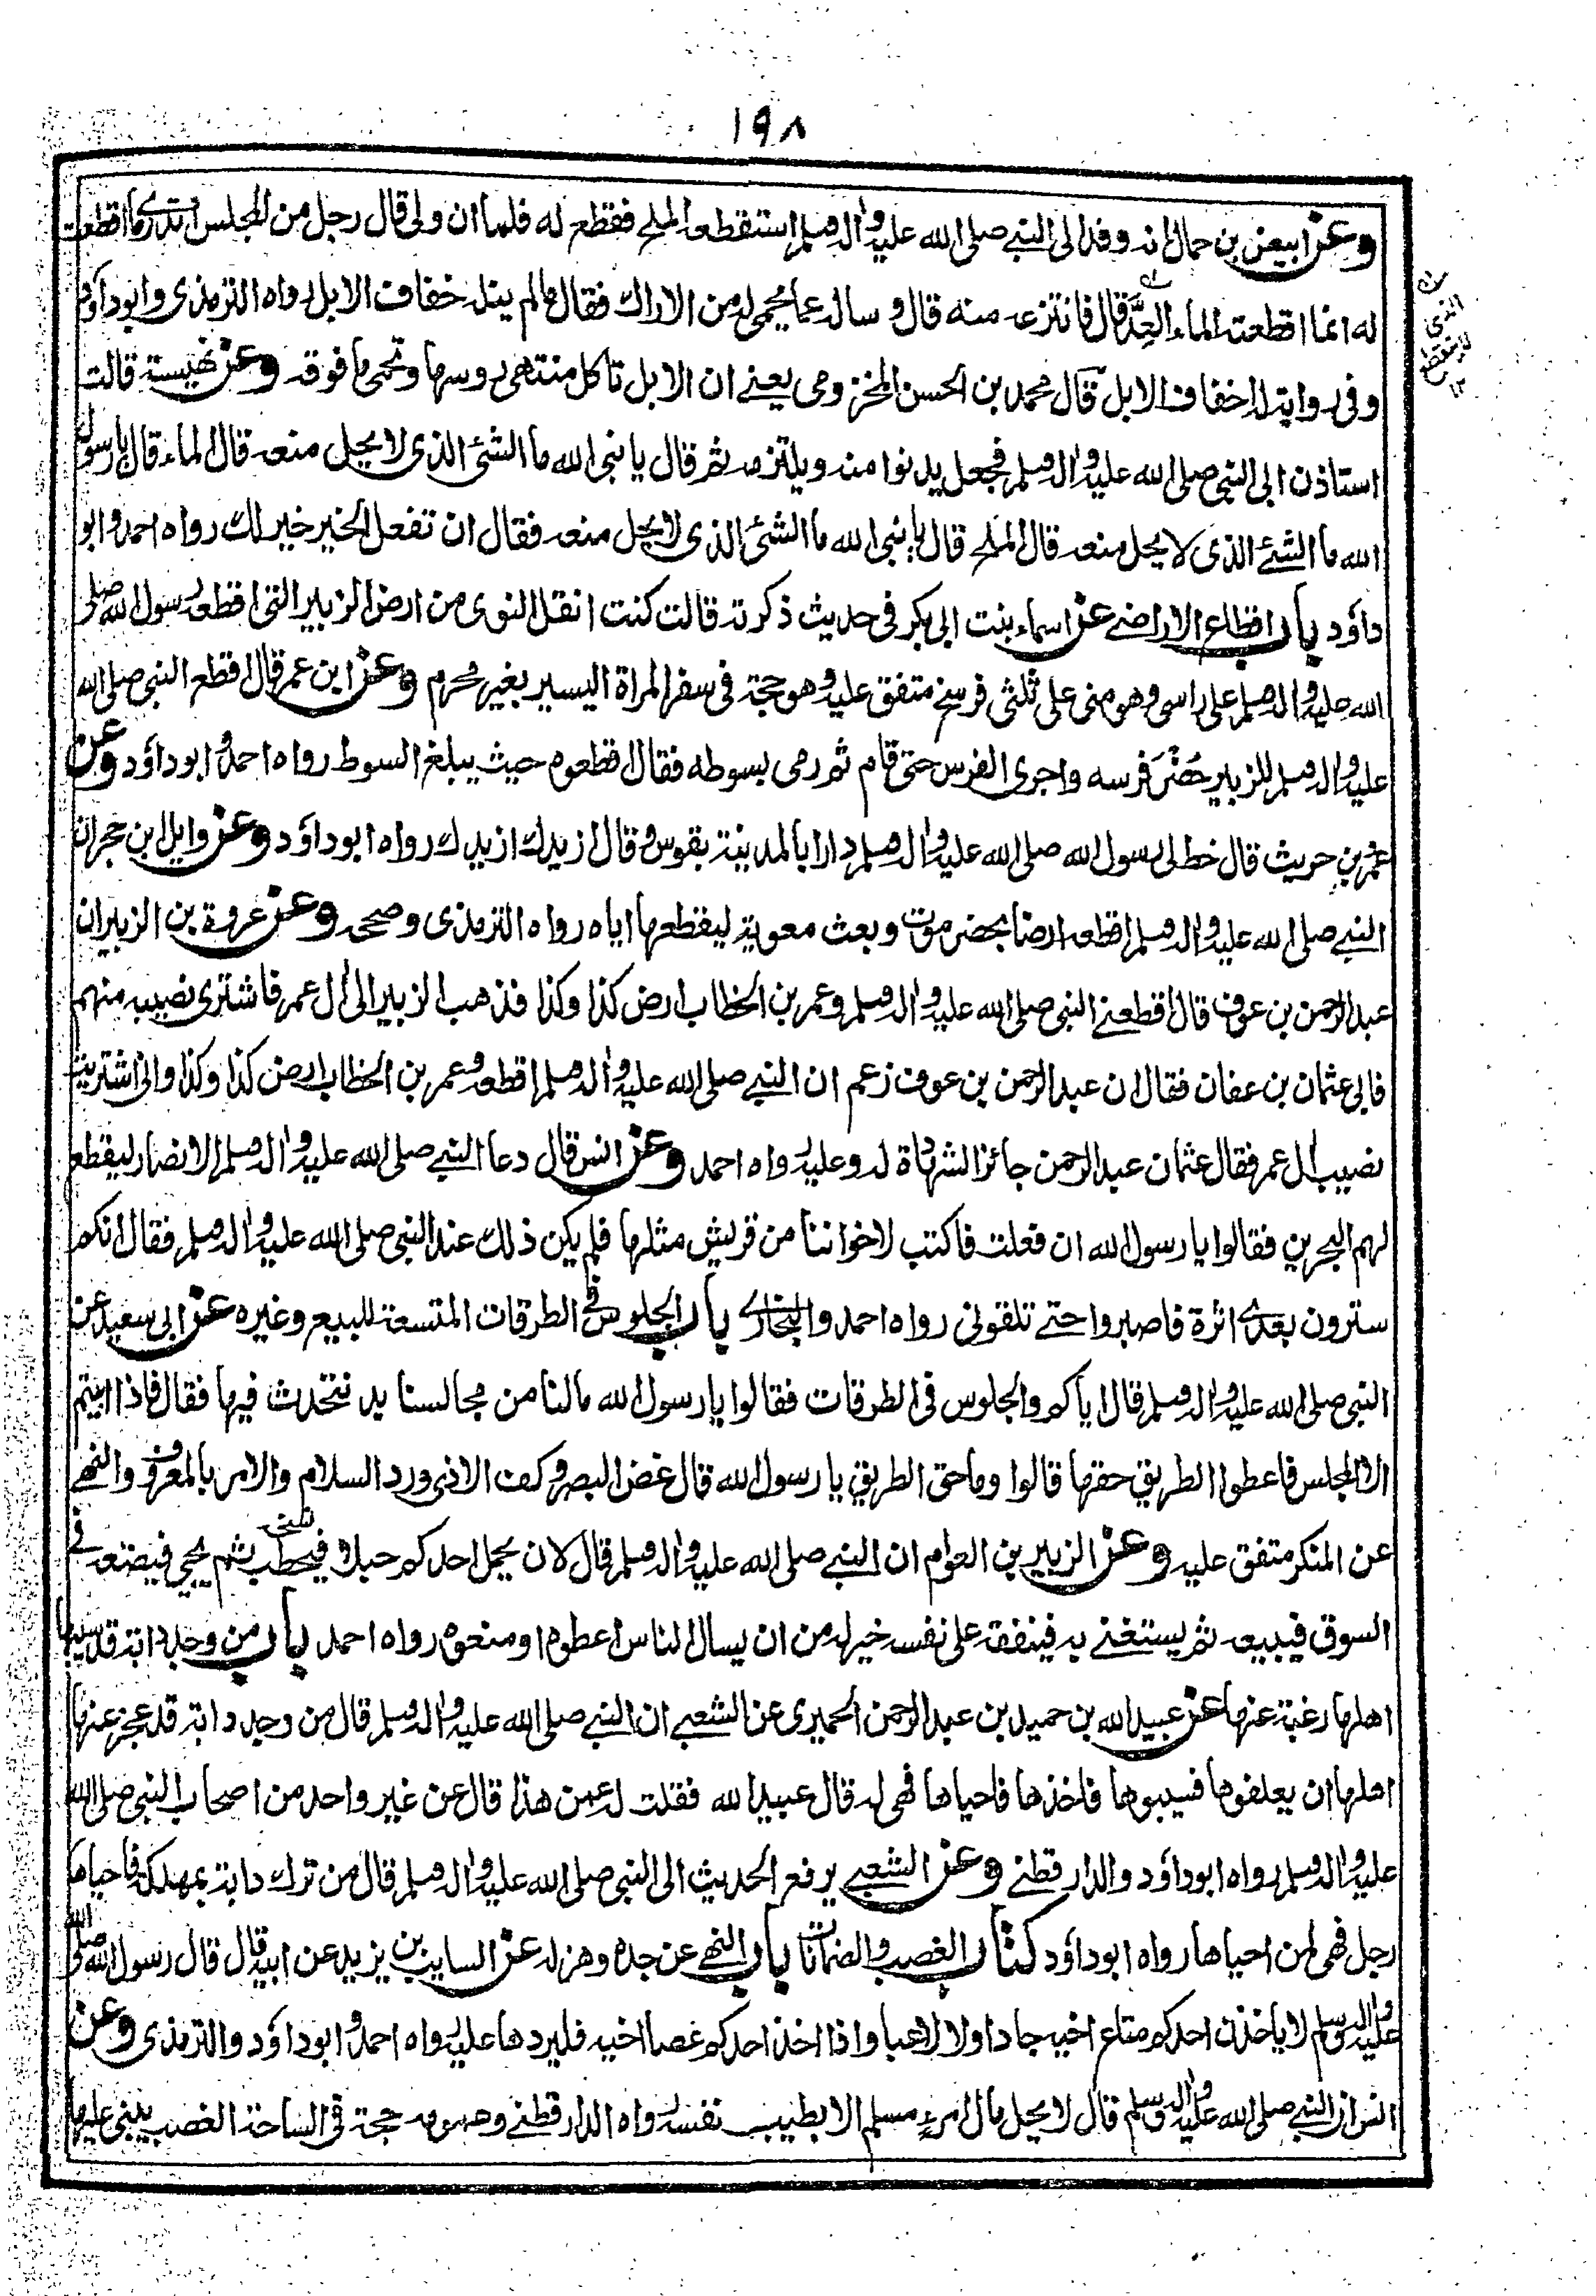 ١٩٨
وعن ابيض بن حمال انه وفد الى النبي صلى الله عليه واله وسلم استقطعه الملح فقطع له فلما ان ولى قال رجل من المجلس اتدرى ما اقطعت
له انما اقطعته الماء العِدَّ قال فانتزعه منه قال وساله عما يحمى له من الاراك فقال ما لم ينله خفاف الابل رواه الترمذى وابو داؤد
وفى رواية له اخفاف الابل قال محمد بن الحسن المخزومى يعنى ان الابل تاكل منتهى روسها وتحمى ما فوقه وعن بهيسة قالت
استاذن ابى النبى صلى الله عليه واله وسلم فجعل يدنوا منه ويلتزمه ثم قال يا نبى الله ما الشئ الذى لا يحل منعه قال الماء قال يا رسول
الله ما الشئ الذى لا يحل منعه قال الملح قال يا نبى الله ما الشئ الذى لا يحل منعه فقال ان تفعل الخير خير لك رواه احمد وابو
داؤد باب اقطاع الاراضى عن اسماء بنت ابى بكر فى حديث ذكرته قالت كنت انقل النوى من ارض الزبير التى اقطعه رسول الله صلى
الله عليه واله وسلم على راسى وهو منى على ثلثى فرسخ متفق عليه وهو حجة فى سفر المراة اليسير بغير محرم وعن ابن عمر قال اقطع النبى صلى الله
عليه واله وسلم للزبير حُضْرَ فرسه واجرى الفرس حتى قام ثم رمى بسوطه فقال اقطعوه حيث يبلغ السوط رواه احمد وابو داؤد وعن
عمرو بن حريث قال خط لى رسول الله صلى الله عليه واله وسلم دارا بالمدينة بقوس وقال ازيدك ازيدك رواه ابو داؤد وعن وايل ابن حجر ان
النبي صلى الله عليه واله وسلم اقطعه ارضا بحضرموت وبعث معوية ليقطعها اياه رواه الترمذى وصححه وعن عروة بن الزبير ان
عبد الرحمن بن عوف قال اقطعنى النبى صلى الله عليه واله وسلم وعمر بن الخطاب ارض كذا وكذا فذهب الزبير الى ال عمر فاشترى نصيبه منهم
فاتى عثمان بن عفان فقال ان عبد الرحمن بن عوف زعم ان النبي صلى الله عليه واله وسلم اقطعه وعمر بن الخطاب ارض كذا وكذا وانى اشتريت
نصيب ال عمر فقال عثمان عبد الرحمن جائز الشهادة له وعليه رواه احمد وعن انس قال دعا النبي صلى الله عليه واله وسلم الانصار ليقطع
لهم البحرين فقالوا يا رسول الله ان فعلت فاكتب لاخواننا من قريش مثلها فلم يكن ذلك عند النبى صلى الله عليه واله وسلم فقال انكم
سترون بعدى اثرة فاصبروا حتى تلقونى رواه احمد والبخارى باب الجلوس فى الطرقات المتسعة للبيع وغيره عن ابى سعيد عن
النبى صلى الله عليه واله وسلم قال اياكم والجلوس فى الطرقات فقالوا يا رسول الله مالنا من مجالسنا بد نتحدث فيها فقال فاذا ابيتم
الا المجلس فاعطوا الطريق حقها قالوا وما حق الطريق يا رسول الله قال غض البصر وكف الاذى ورد السلام والامر بالمعروف والنهى
عن المنكر متفق عليه وعن الزبير بن العوام ان النبي صلى الله عليه واله وسلم قال لان يحمل احدكم حبلا فيحطب ثم يجى فيضعه فى
السوق فيبيعه ثم يستغنى به فينفقه على نفسه خير له من ان يسال الناس اعطوه او منعوه رواه احمد باب من وجد دابة قد سيبها
اهلها رغبة عنها عن عبيد الله بن حميد بن عبد الرحمن الحميرى عن الشعبى ان النبي صلى الله عليه واله وسلم قال من وجد دابة قد عجز عنها
اهلها ان يعلفوها فسيبوها فاخذها فاحياها فهى له قال عبيد الله فقلت له عمن هذا قال عن غير واحد من اصحاب النبى صلى الله
عليه واله وسلم رواه ابو داؤد والدارقطنى وعن الشعبى يرفع الحديث الى النبى صلى الله عليه واله وسلم قال من ترك دابة بمهلكة فاحياها
رجل فهى لمن احياها رواه ابو داؤد كتاب الغصب والضمانات باب النهى عن جده وهزله عن السايب بن يزيد عن ابيه قال قال رسول الله صلى الله
عليه واله وسلم لا ياخذن احدكم متاع اخيه جادا ولا لاعبا واذا اخذ احدكم عصا اخيه فليردها عليه رواه احمد وابو داؤد والترمذى وعن
انس ان النبي صلى الله عليه واله وسلم قال لا يحل مال امرءٍ مسلم الا بطيب نفسه رواه الدارقطنى وعمومه حجة فى الساحة الغصب يبنى عليها
الذى
لا ينقطع
١٢